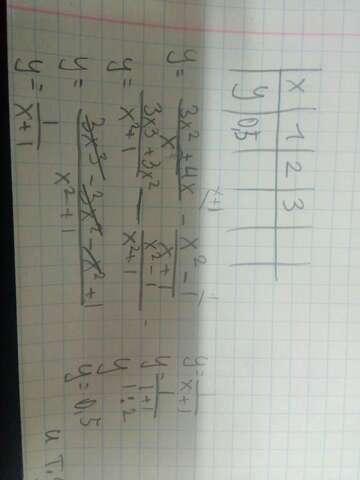 x | 1 | 2 | 3
y | 0,5
y = (3x² + 4x)/x - (x² - 1)/(x + 1)
y = (3x³ + 3x²)/(x² + 1) - (x² - 1)/(x² + 1)
y = (3x³ - 3x² - x² + 1)/(x² + 1)
y = 1/(x + 1)
y = 1/(x + 1)
y = 1/(1 + 1)
y 1 : 2
y = 0,5
и т.